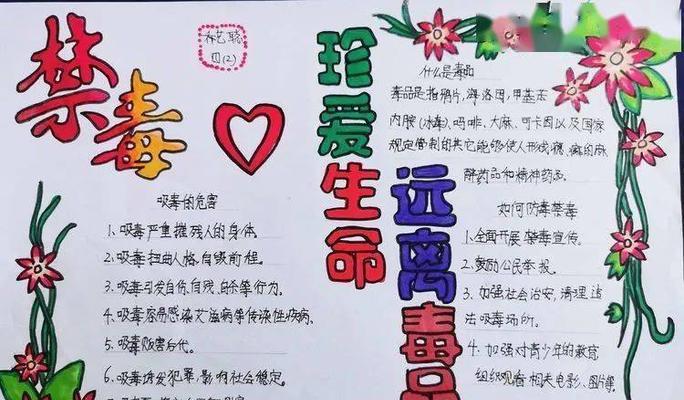 禁毒
四(2)
吸毒的危害
1、吸毒严重摧残人的身体.
2、吸毒扭曲人格,自毁前程。
3、吸毒引发自伤、自残、自杀等行为。
4、吸毒容易感染艾滋病等传染性疾病、
5、吸毒贻害后代。
6、吸毒诱发犯罪,影响社会稳定。
珍爱生命
远离毒品
什么是毒品
毒品是指鸦片,海洛因,甲基苯
丙胺(冰毒)、吗啡、大麻、可卡因以及国家
规定管制的其它能够使人形成瘾癖的麻
醉药品和精神药品。
如何防毒禁毒
1、全面开展禁毒宣传。
2、鼓励公民举报。
3、加强社会治安,清理违
法吸毒场所。
4、加强对青少年的教育
组织观看相关电影、图片等.